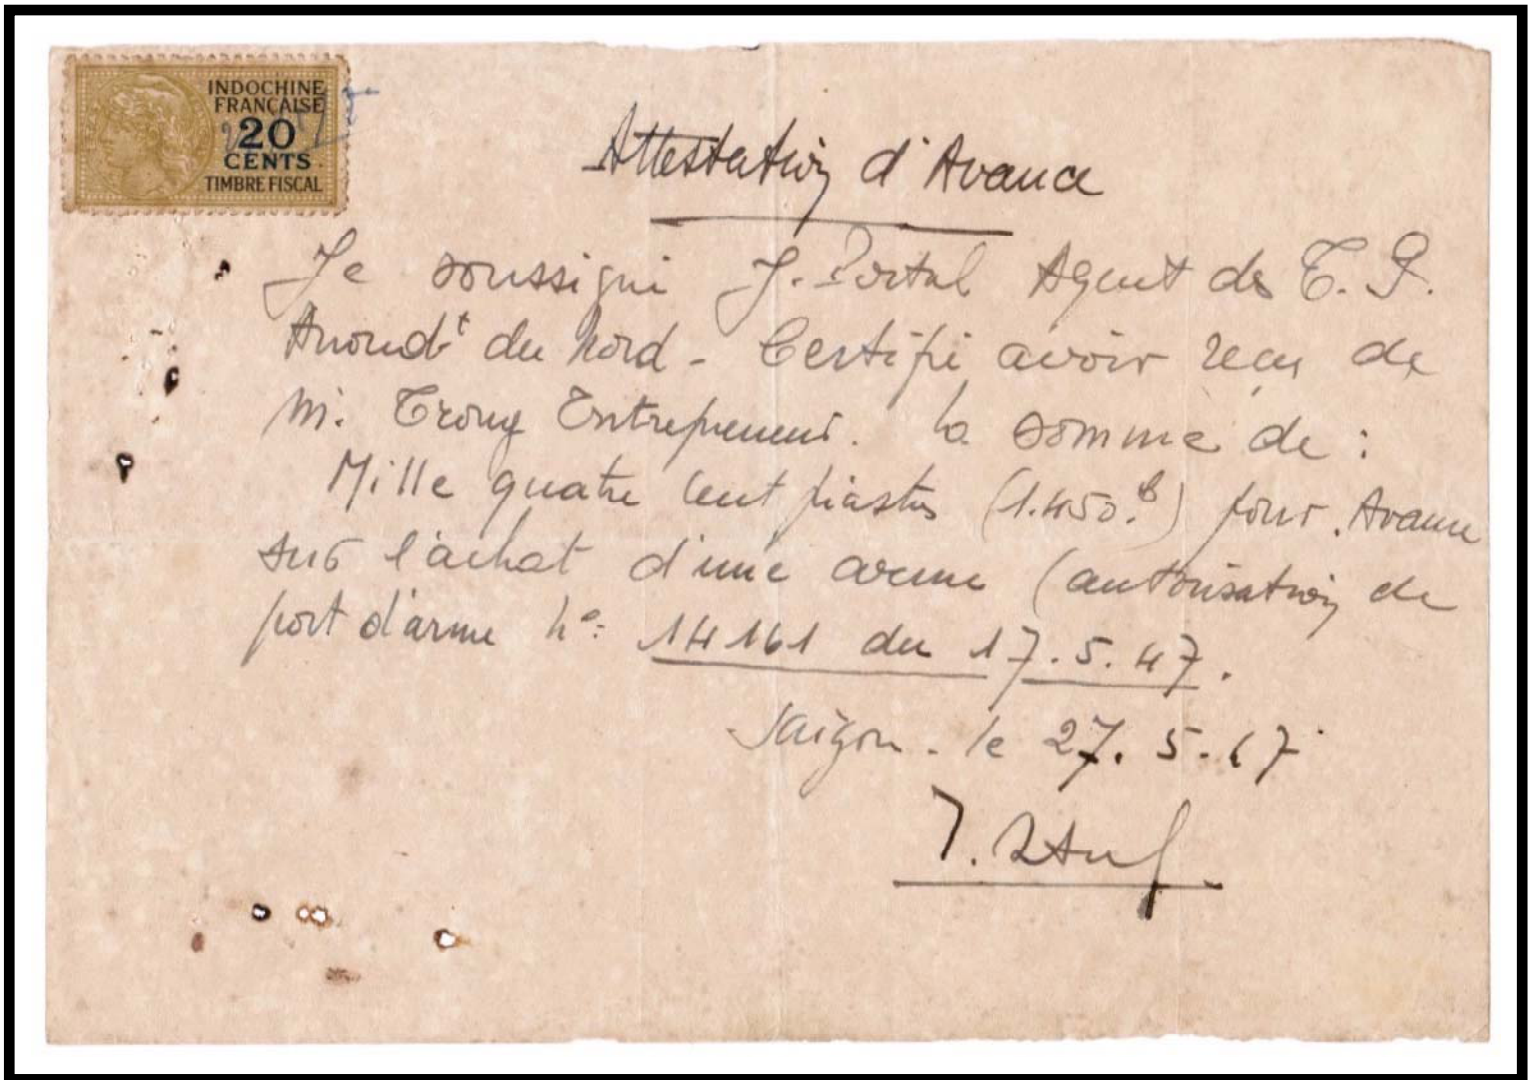 INDOCHINE
FRANÇAISE
20
CENTS
TIMBRE FISCAL
Attestation d'Avance
Je soussigné J. Portal Agent des T. P.
Arrond^t du Nord - Certifie avoir reçu de
M. Trong Entrepreneur. la somme de :
Mille quatre cent piastres (1.450.$) pour Avance
sur l'achat d'une arme (autorisation de
port d'arme N°: 14161 du 17.5.47.
Saigon - le 27.5.47